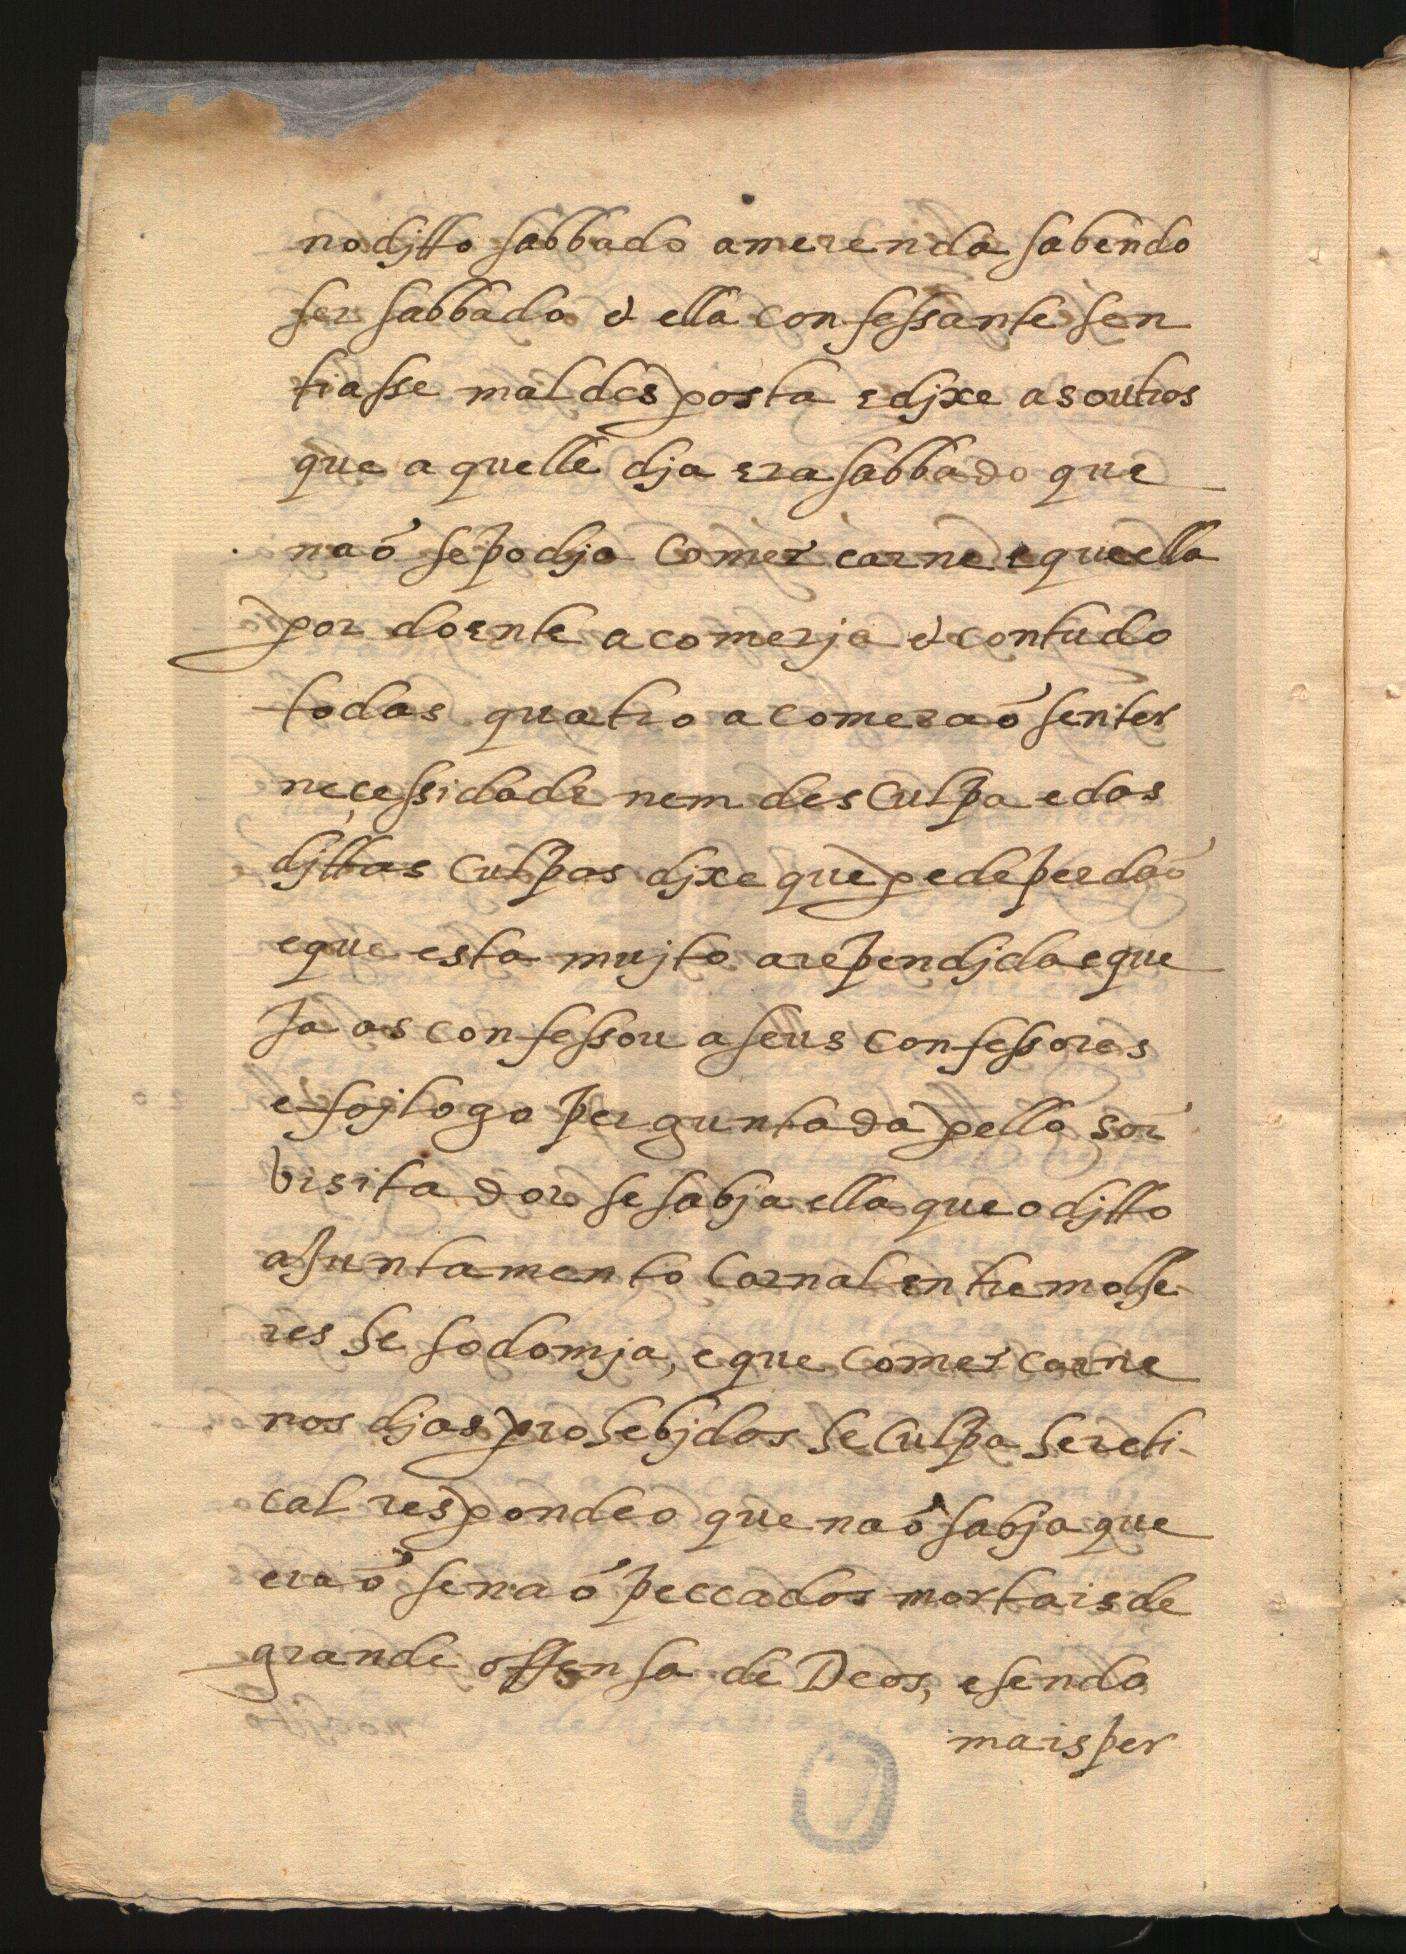 no djtto sabbado a merenda sabendo
ser sabbado e ella confessante sen
tiasse mal desposta e djxe as outras
que aquelle dja era sabbado que
naõ se podja comer carne e que ella
por doente a comerja e contudo
todas quatro a comeraõ sen ter
neçessidade nem desculpa e das
djttas culpas djxe que pede perdaõ
e que esta mujto arependjda e que
ja as confessou a seus confessores
e foj logo perguntada pello sõr
visitador se sabja ella que o djtto
ajuntamento carnal entre molhe
res he sodomja, e que comer carne
nos djas prohebjdos he culpa hereti-
cal respondeo que naõ sabja que
eraõ senaõ peccados mortais de
grande offensa de Deos, e sendo
mais per